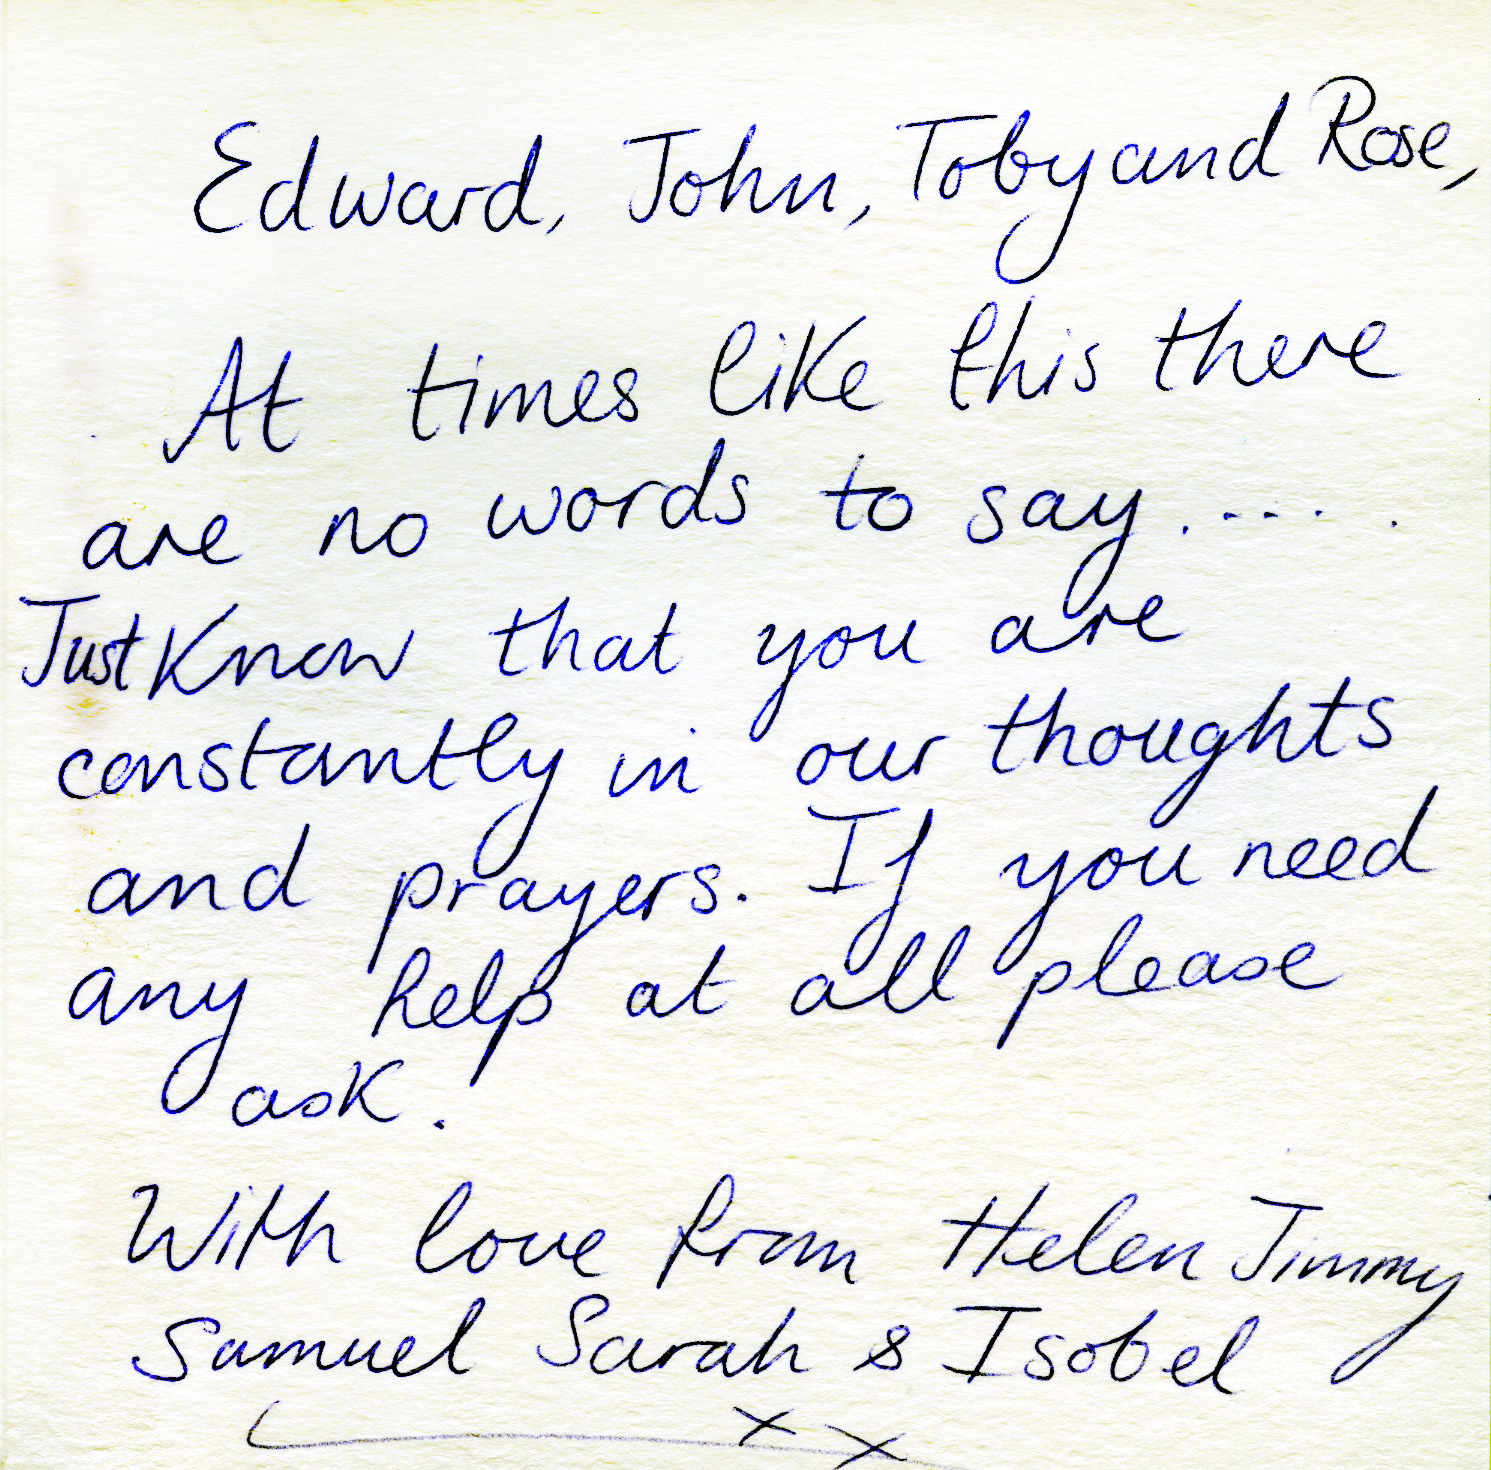 Edward, John, Toby and Rose,
At times like this there
are no words to say......
Just Know that you are
constantly in our thoughts
and prayers. If you need
any help at all please
ask.
With love from Helen Jimmy
Samuel Sarah & Isobel
xx